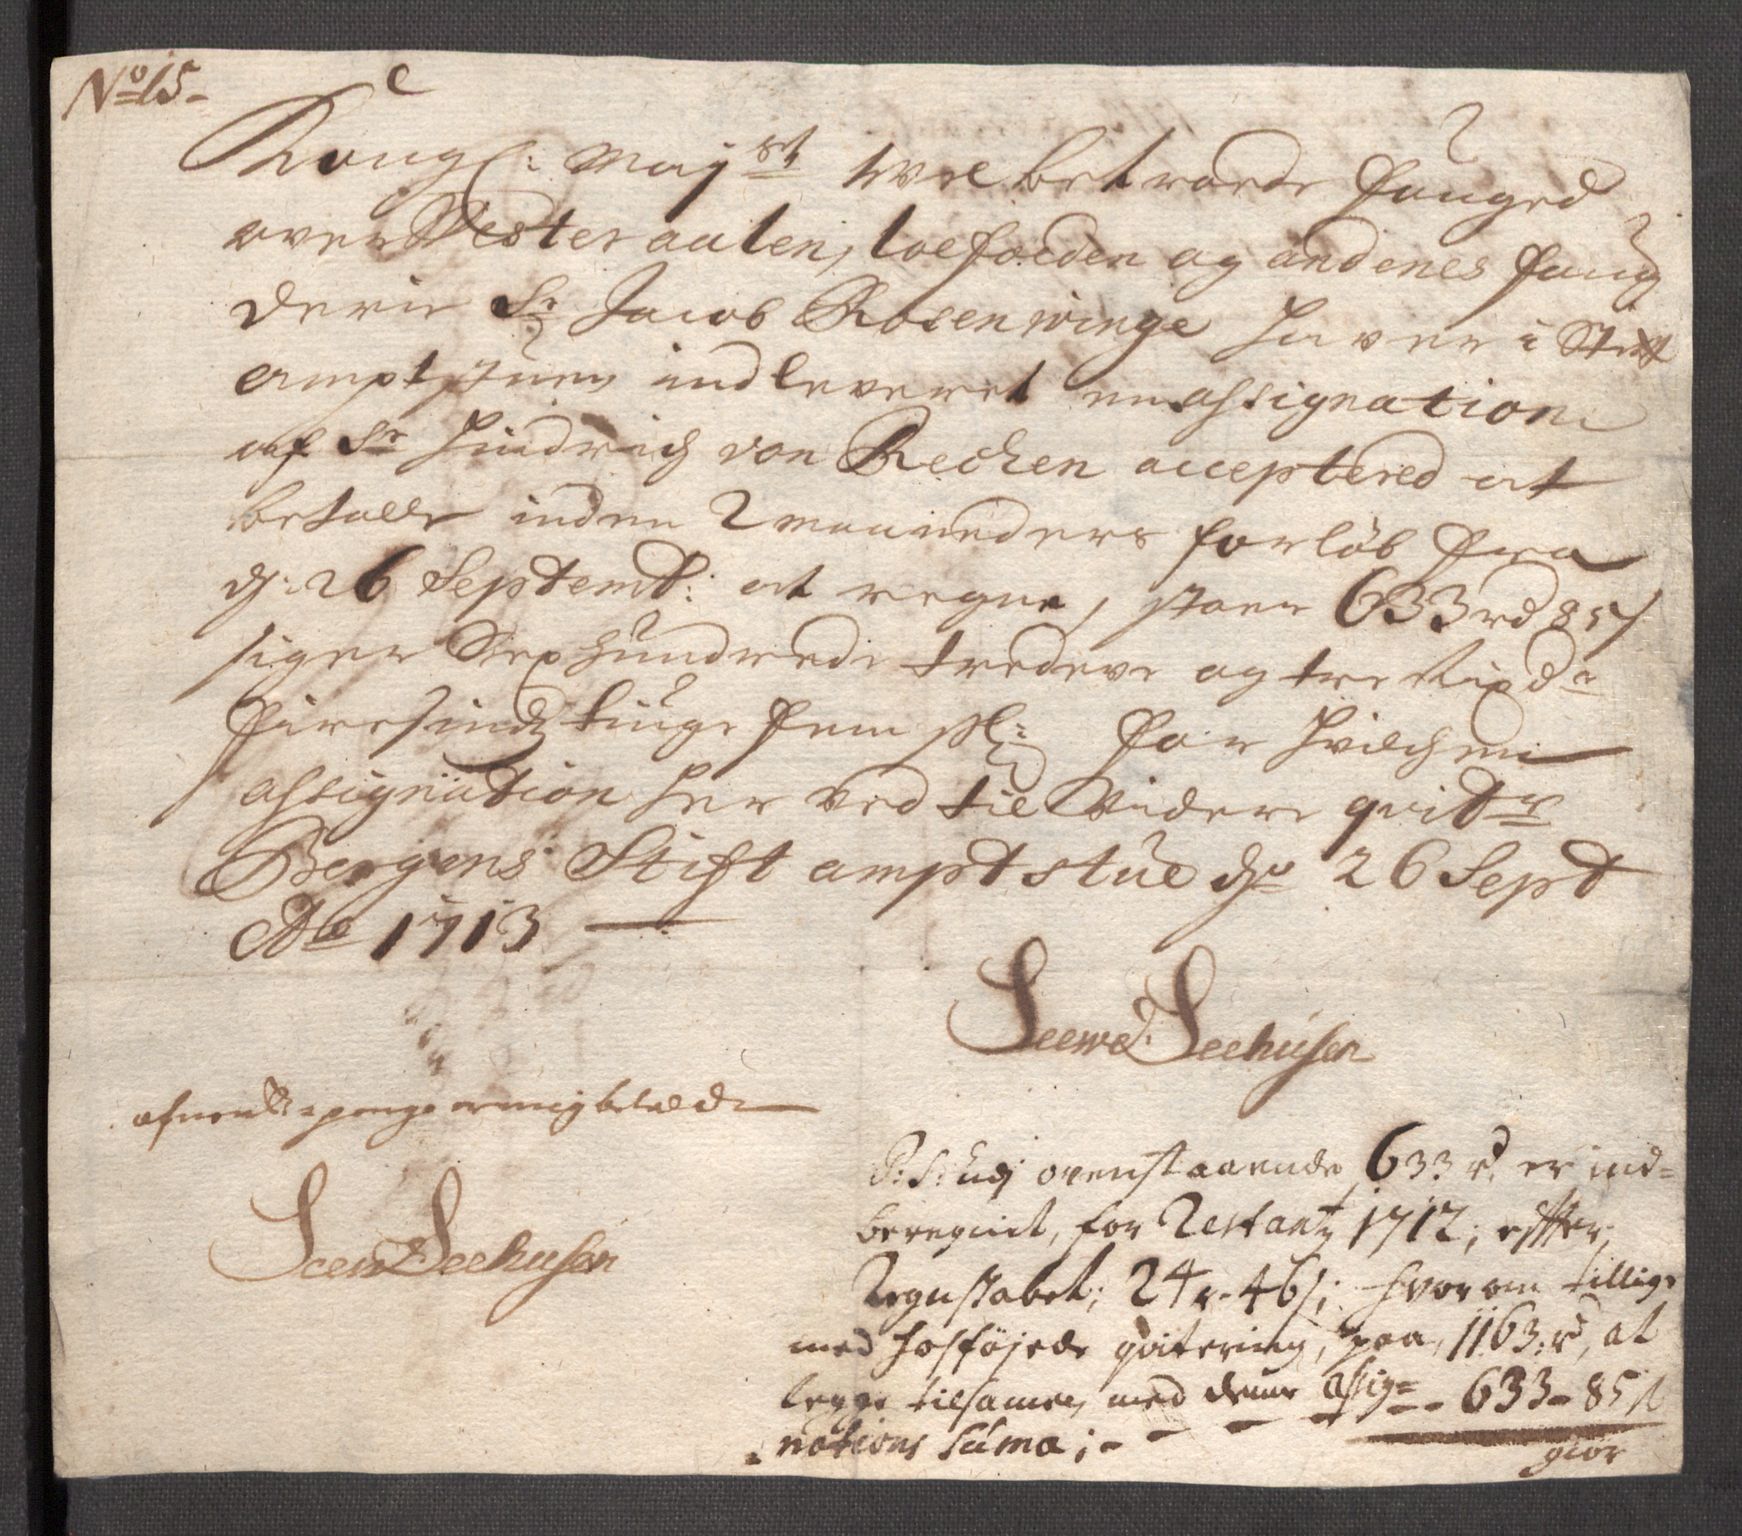 No 15-
Kongl: Maysts welbetroede Fouged
over Westeraalen, Loefoeden og Andenes Foug
derie Sr Jacob Rosenwinge haver i Stift
ampt stuen indleveret en assignation
af Sr Hindrich von Rechen accepteret at
betalle inden 2 maaneders forløb fra
d: 26 Septemb: at regne, stoer 633 rd 85 s
siger Sex hundrede tredeve og tre Rixdr
firesindstiuge fem sk: for hvilchen
assignation her ved til Videre qvitr
Bergens Stiftamptstue dn 26 Sept
Ao 1713
Seewd. Seehusen
afnente penge er mig betalde
Seewd Seehusen
P: S: udj ovenstaaende 633 rd er ind=
beregnit, for Restantz 1712; effter,
Regnskabet; 24 r- 46 s; hvorom tillige
med hosføjede qvitering, paa, 1163: rd, at
legge tilsamen med denne Assig= - - 633- 85 s
nations Suma; - - - -
giør